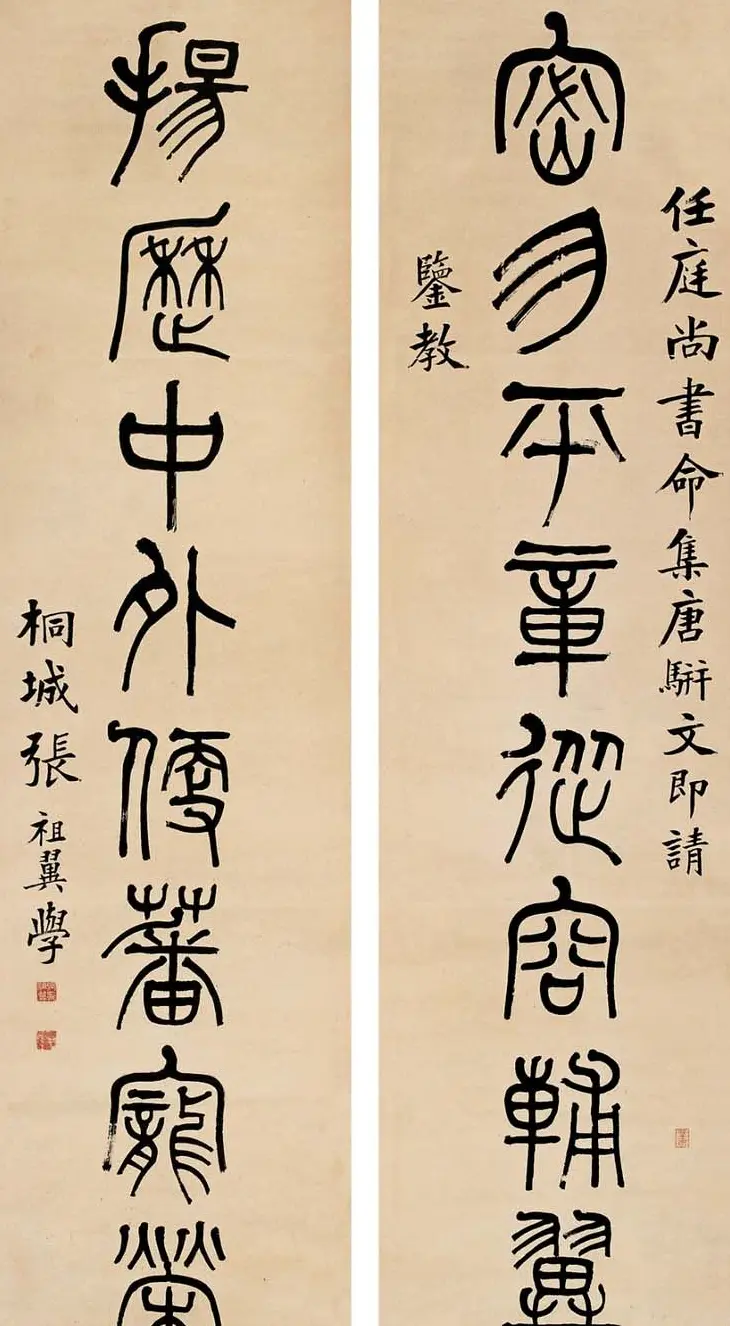 任庭尚書命集唐騈文即請
密勿平章從容輔翼
鑒教
揚歷中外便蕃寵榮
桐城張祖翼學